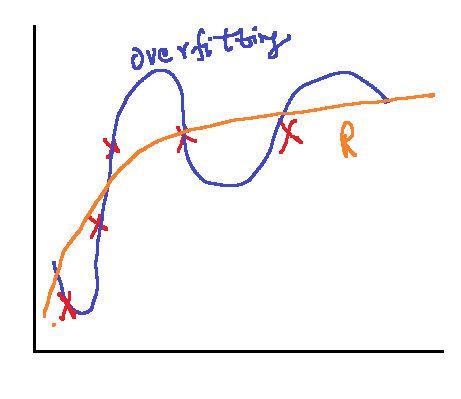 overfitting
R